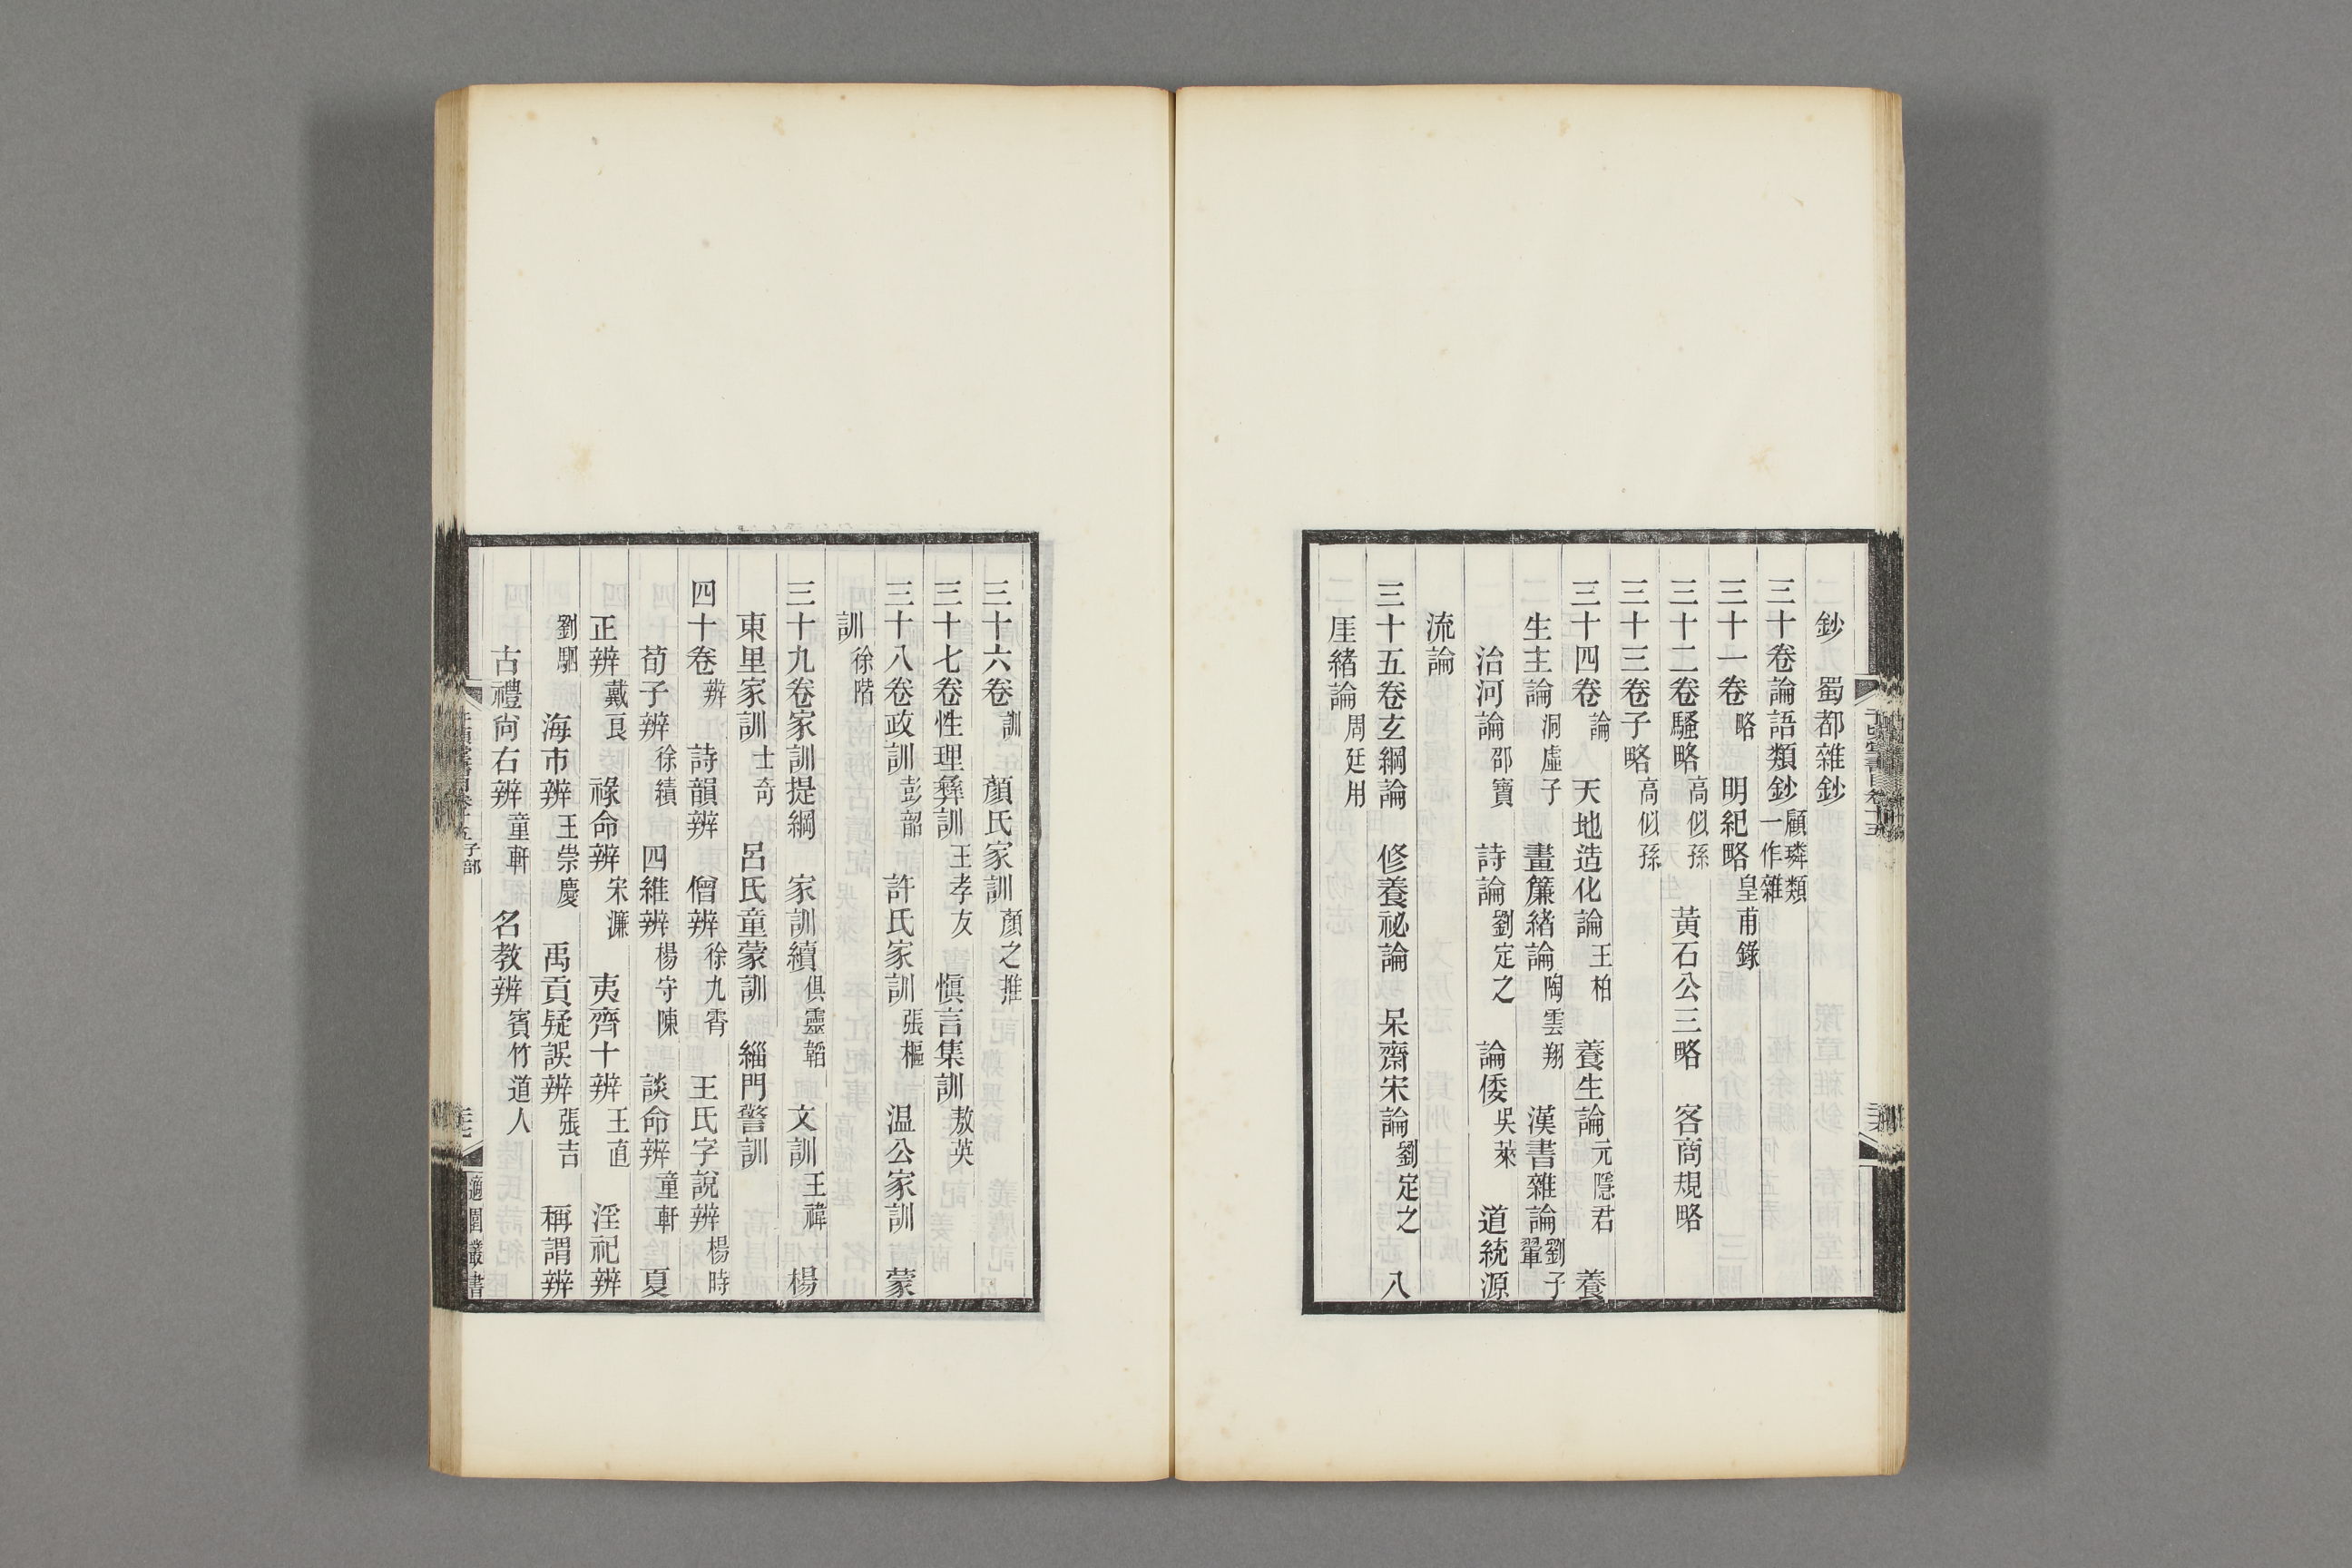 鈔　蜀都雜鈔
三十卷論語類鈔顧璘類一作雜
三十一卷略　明紀略皇甫錄
三十二卷騷略高似孫　黃石公三略　客商規略
三十三卷子略高似孫
三十四卷論　天地造化論王柏　養生論元隱君　養
生主論洞虛子　畫簾緒論陶雲翔　漢書雜論劉子翬
治河論邵寶　詩論劉定之　論倭吳萊　道統源
流論
三十五卷玄綱論　修養祕論　呆齋宋論劉定之　八
厓緒論周廷用
三十六卷訓　顏氏家訓顏之推
三十七卷性理彝訓王孝友　愼言集訓敖英
三十八卷政訓彭韶　許氏家訓張樞　温公家訓　蒙
訓徐階
三十九卷家訓提綱　家訓續俱靈韜　文訓王褘　楊
東里家訓士奇　呂氏童蒙訓　緇門警訓
四十卷辨　詩韻辨　僧辨徐九霄　王氏字說辨楊時
荀子辨徐績　四維辨楊守陳　談命辨童軒　夏
正辨戴良　祿命辨宋濂　夷齊十辨王直　淫祀辨
劉駰　海市辨王崇慶　禹貢疑誤辨張吉　稱謂辨
古禮尙右辨童軒　名教辨賓竹道人
子部
三七
適園叢書